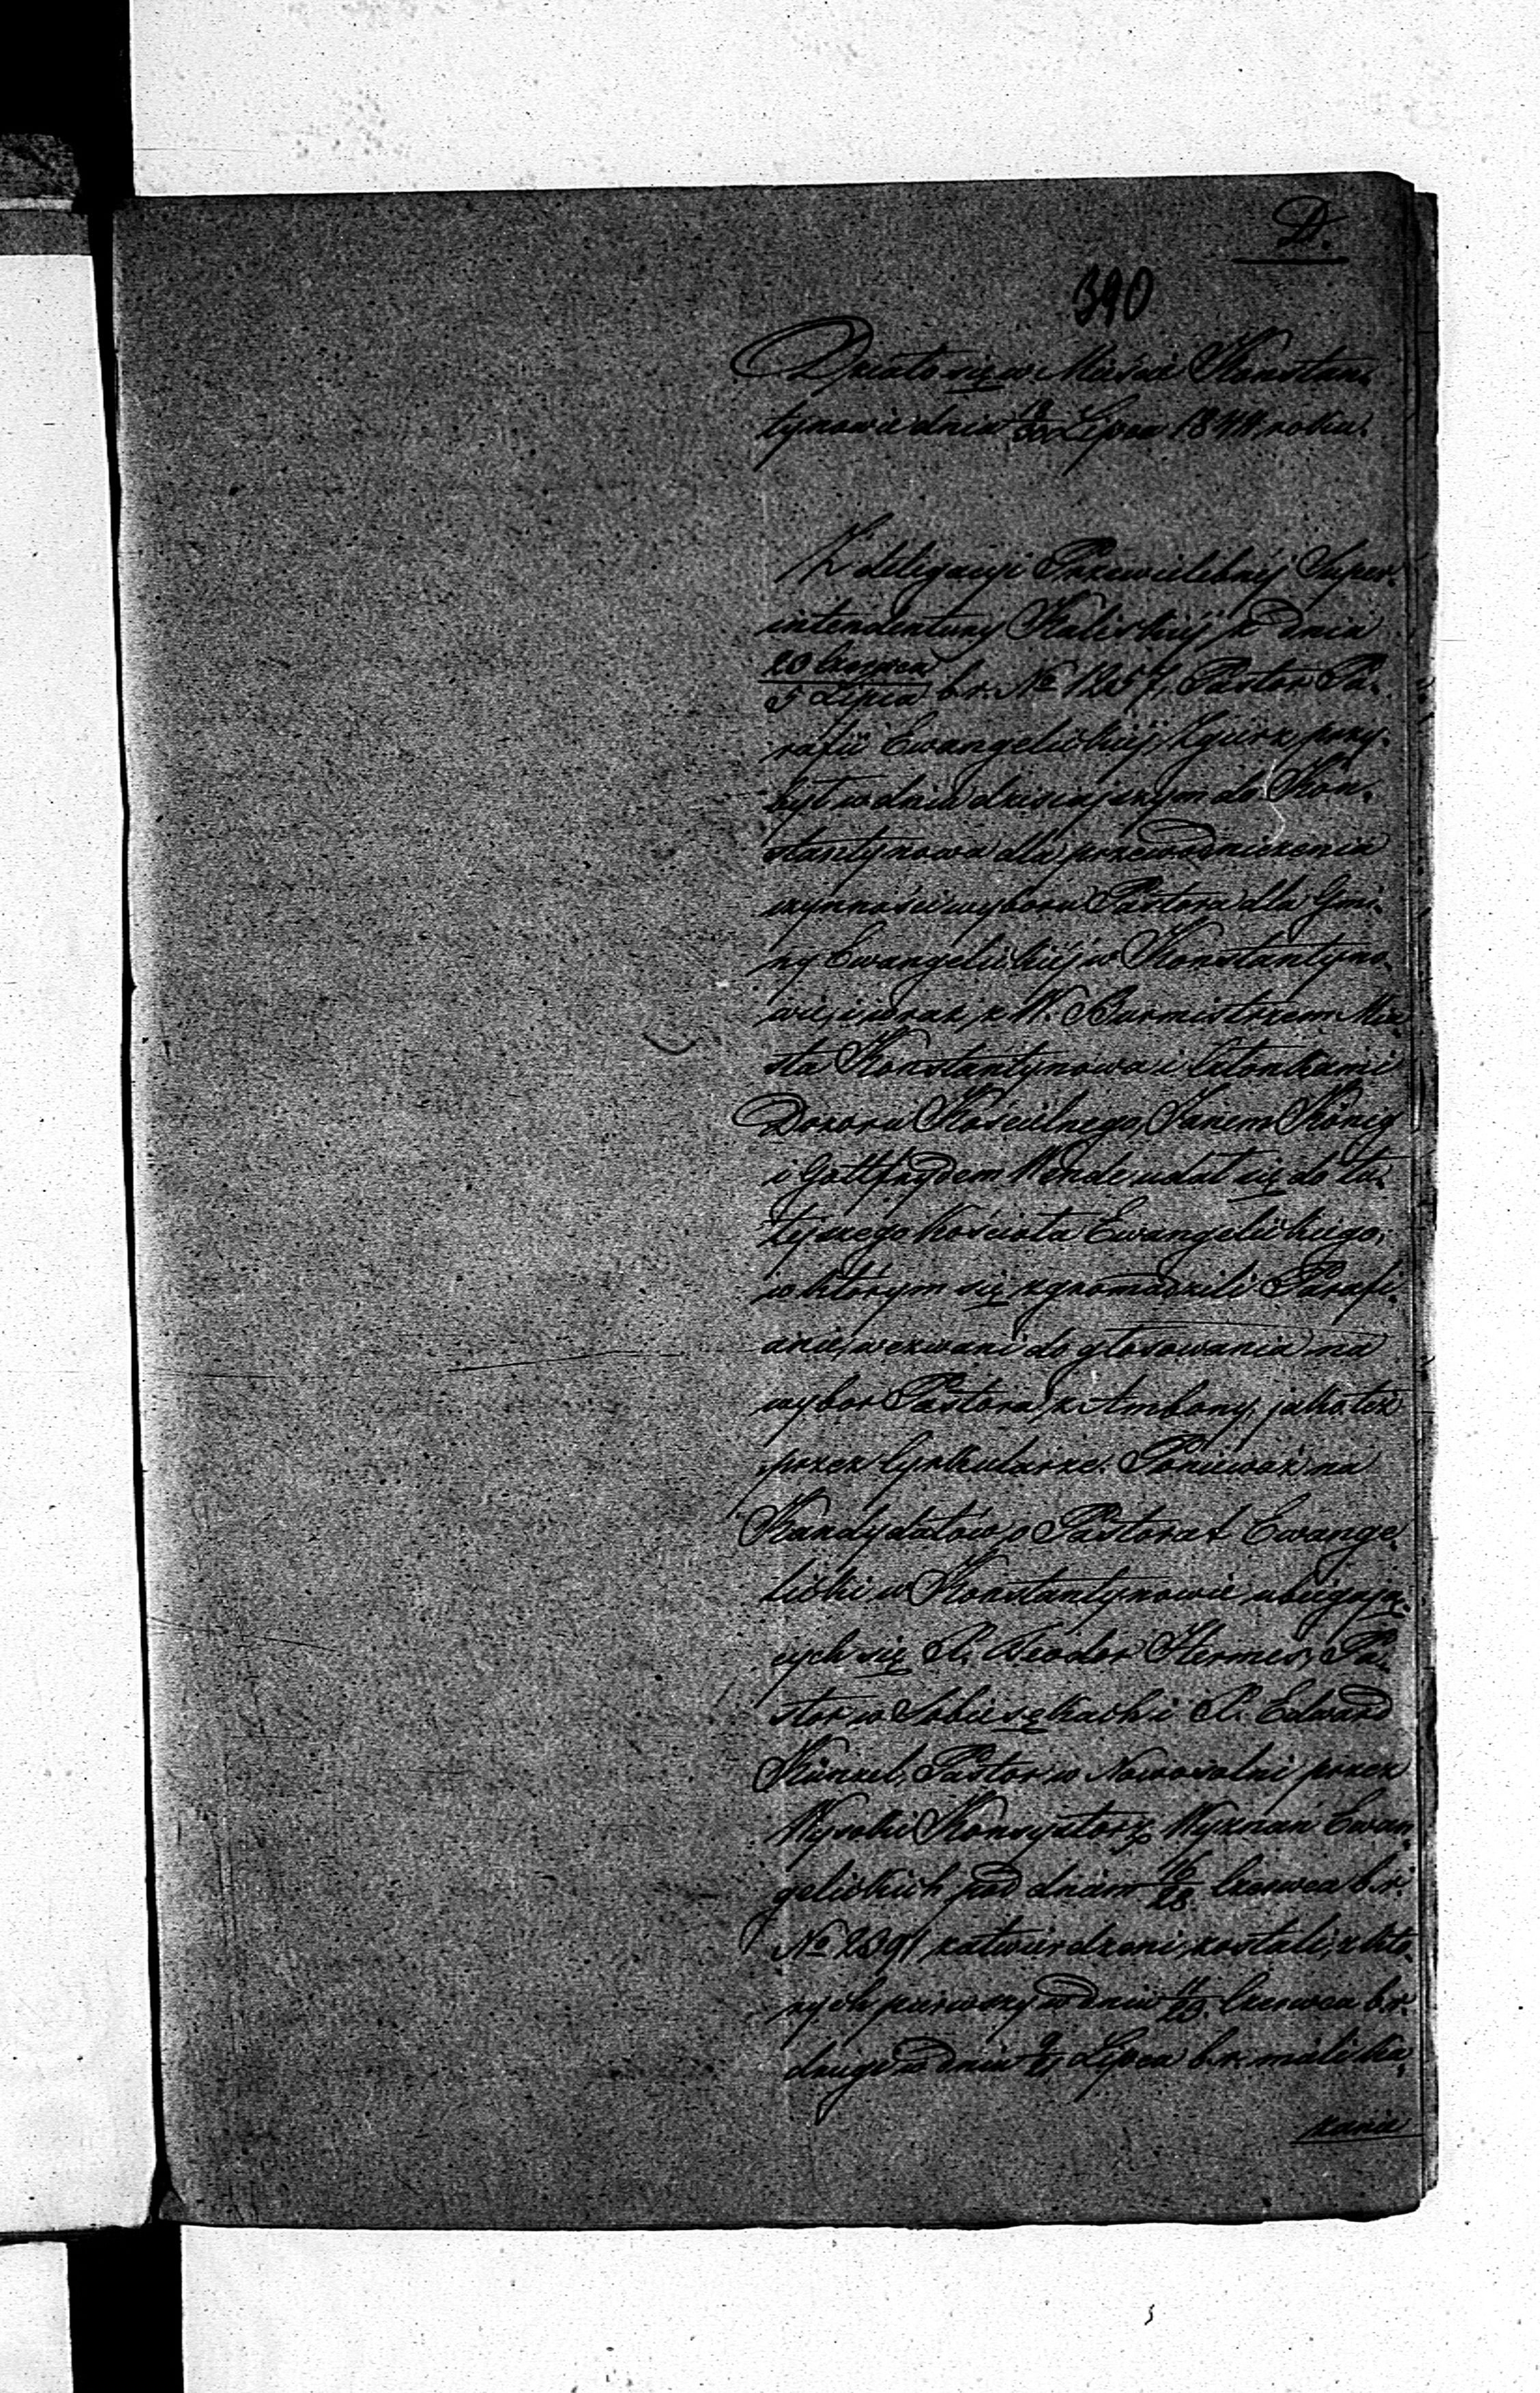 D.
390
Działo się w Mieście Konstan-
tynowie dnia 18/30 Lipca 1844 roku.
Z delegacyi Przewielebnéj Super-
intendentury Kaliskiéj z dnia
23 Czerwca/5 Lipca b.r. No 1257, Pastor Pa-
rafii Ewangelickiéj Zgierz, przy-
był w dniu dzisiajszym do Kon-
stantynowa dla przewodniczenia
czynności wyboru Pastora dla Gmi-
ny Ewangelickiéj w Konstantyno-
wie, i wraz z W. Burmistrzem Mia
sta Konstantynowa i Członkami
Dozoru Kościelnego, Janem König
i Gottfrydem Wende udał się do tu-
tejszego Kościoła Ewangelickiego,
w którym się zgromadzili Parafi-
anie, wezwani do głosowania na
wybor Pastora, z Ambony, jako téż
przez Cyrkularze. Ponieważ na
Kandydatów o Pastorat Ewange-
licki w Konstantynowie ubiegają-
cych się X. Teodor Hermes, Pa-
stor w Sobiesękach i X. Edward
Künzel, Pastor w Nowosolni przez
Wysoki Konsystorz Wyznań Ewan
gelickich pod dniem 16/28 Czerwca b.r.
No 2391 zatwierdzeni zostali, z któ-
rych pierwszy w dniu 11/23 Czerwca b.r.
drugi w dniu 9/21 Lipca b.r. mieli ka-
zania